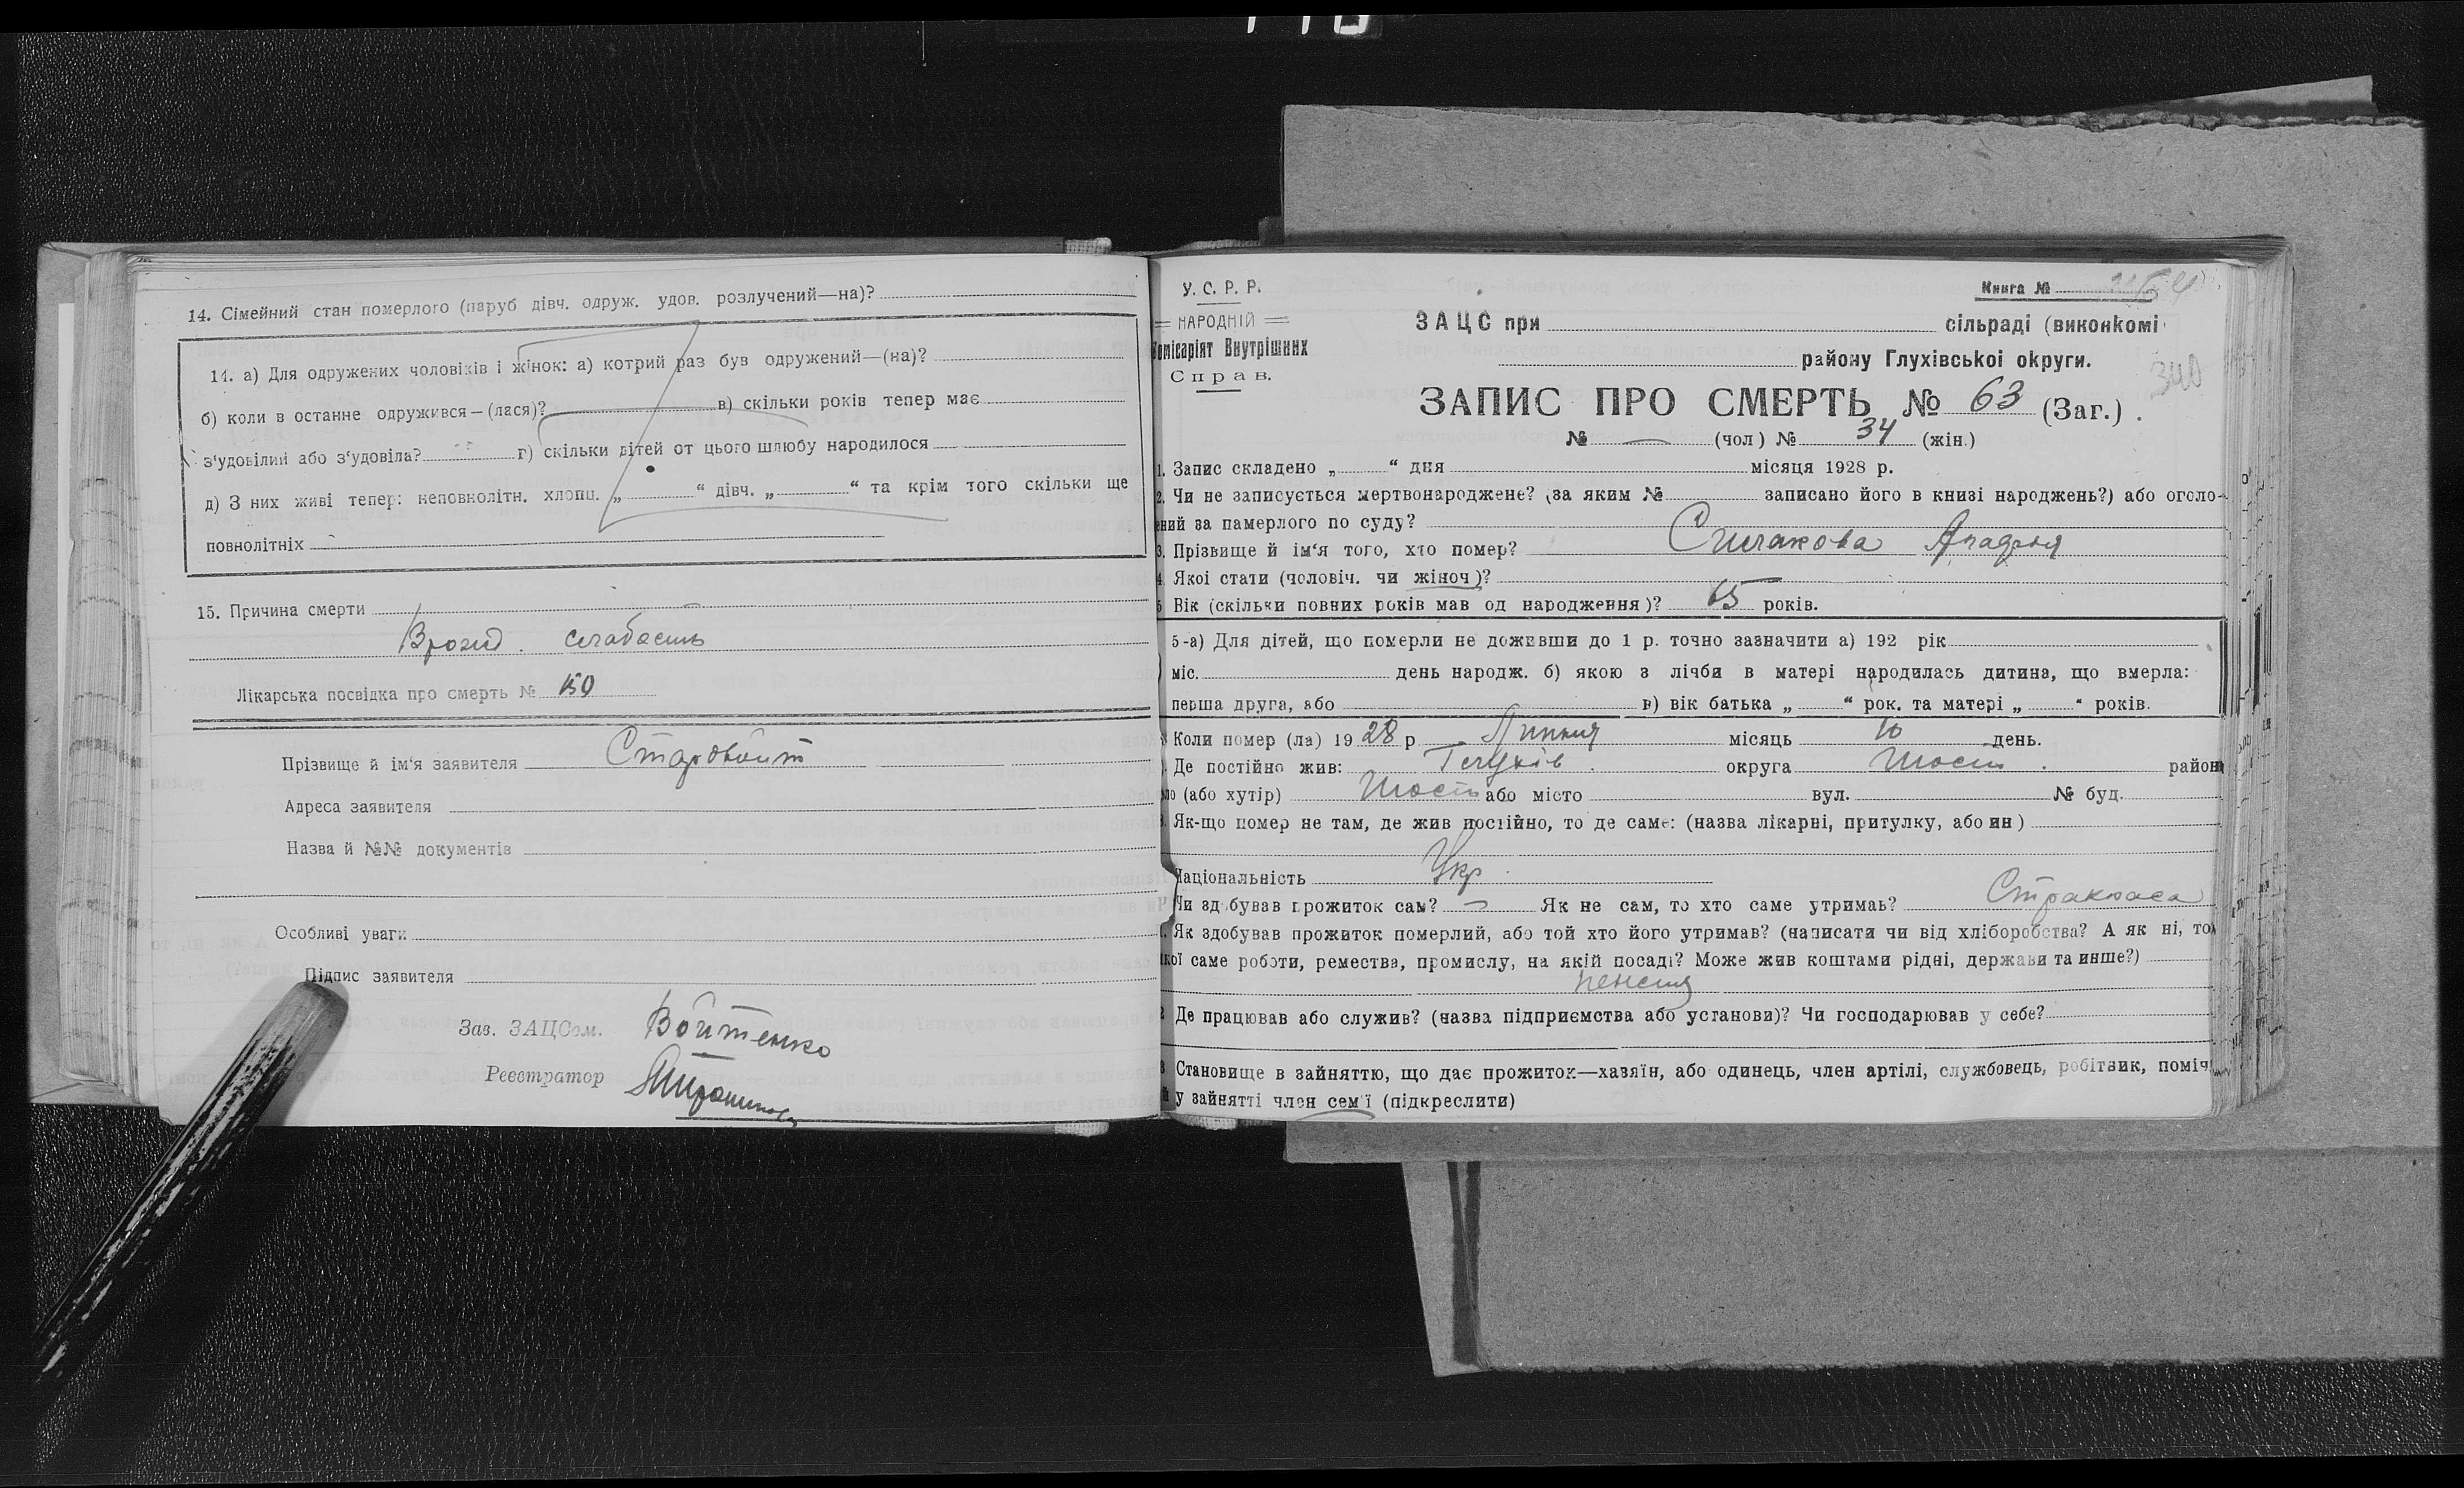 14. Сімейний стан померлого (паруб дівч. одруж. удов. розлучений—на)?
14. а) Для одружених чоловіків і жінок: а) котрий раз був одружений—(на)?
б) коли в останне одружився—(лася)? в) скільки років тепер має
з'удовілий або з'удовіла? г) скільки дітей от цього шлюбу народилося
д) З них живі тепер: неповнолітн. хлопц. „ “ дівч. „ “ та крім того скільки ще
повнолітніх
15. Причина смерти
Врожд. слабость
Лікарська посвідка про смерть № 150
Прізвище й ім'я заявителя Старовойт
Адреса заявителя
Назва й №№ документів
Особливі уваги
Підпис заявителя
Зав. ЗАЦСом. Войтенко
Реєстратор
У. С. Р. Р.
НАРОДНІЙ
Комісаріят Внутрішних
Справ.
Книга №
340
ЗАЦС при сільраді (виконкомі
району Глухівської округи.
ЗАПИС ПРО СМЕРТЬ № 63 (Заг.)
№ — (чол) № 34 (жін.)
1. Запис складено „ “ дня місяця 1928 р.
2. Чи не записується мертвонароджене? (за яким № записано його в книзі народжень?) або оголо-
ений за памерлого по суду?
3. Прізвище й ім'я того, хто помер?
4 Якої стати (чоловіч. чи жіноч)?
5 Вік (скільки повних років мав од народження)? 65 років.
5-а) Для дітей, що померли не доживши до 1 р. точно зазначити а) 192 рік
міс. день народж. б) якою з лічби в матері народилась дитина, що вмерла:
перша друга, або в) вік батька „ “ рок. та матері „ “ років.
Коли помер (ла) 1928 р Липня місяць 10 день.
Де постійно жив: Глухів. округа Шост. район
ло (або хутір) Шост або місто вул. № буд.
Як-що помер не там, де жив постійно, то де саме: (назва лікарні, притулку, або ин)
Національність Укр
Чи здобував прожиток сам? — Як не сам, то хто саме утримав? Страхкаса
Як здобував прожиток померлий, або той хто його утримав? (написати чи від хліборобства? А як ні, то
кої саме роботи, ремества, промислу, на якій посаді? Може жив коштами рідні, держави та инше?)
пенсия
Де працював або служив? (назва підприємства або установи)? Чи господарював у себе?
3 Становище в зайняттю, що дає прожиток—хазяїн, або одинець, член артілі, службовець, робітник, поміч
й у зайнятті член сем'ї (підкреслити)